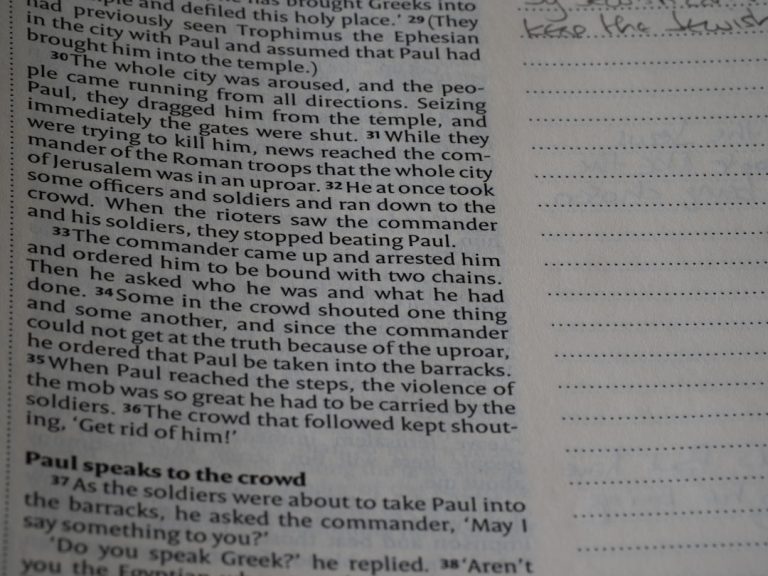 has brought Greeks into
and defiled this holy place.' 29(They
had previously seen Trophimus the Ephesian
in the city with Paul and assumed that Paul had
brought him into the temple.)
30The whole city was aroused, and the peo-
ple came running from all directions. Seizing
Paul, they dragged him from the temple, and
immediately the gates were shut. 31While they
were trying to kill him, news reached the com-
mander of the Roman troops that the whole city
of Jerusalem was in an uproar. 32He at once took
some officers and soldiers and ran down to the
crowd. When the rioters saw the commander
and his soldiers, they stopped beating Paul.
33The commander came up and arrested him
and ordered him to be bound with two chains.
Then he asked who he was and what he had
done. 34Some in the crowd shouted one thing
and some another, and since the commander
could not get at the truth because of the uproar,
he ordered that Paul be taken into the barracks.
35When Paul reached the steps, the violence of
the mob was so great he had to be carried by the
soldiers. 36The crowd that followed kept shout-
ing, 'Get rid of him!'
Paul speaks to the crowd
37As the soldiers were about to take Paul into
the barracks, he asked the commander, 'May I
say something to you?'
'Do you speak Greek?' he replied. 38'Aren't
you the Egyptian
keep the Jewish